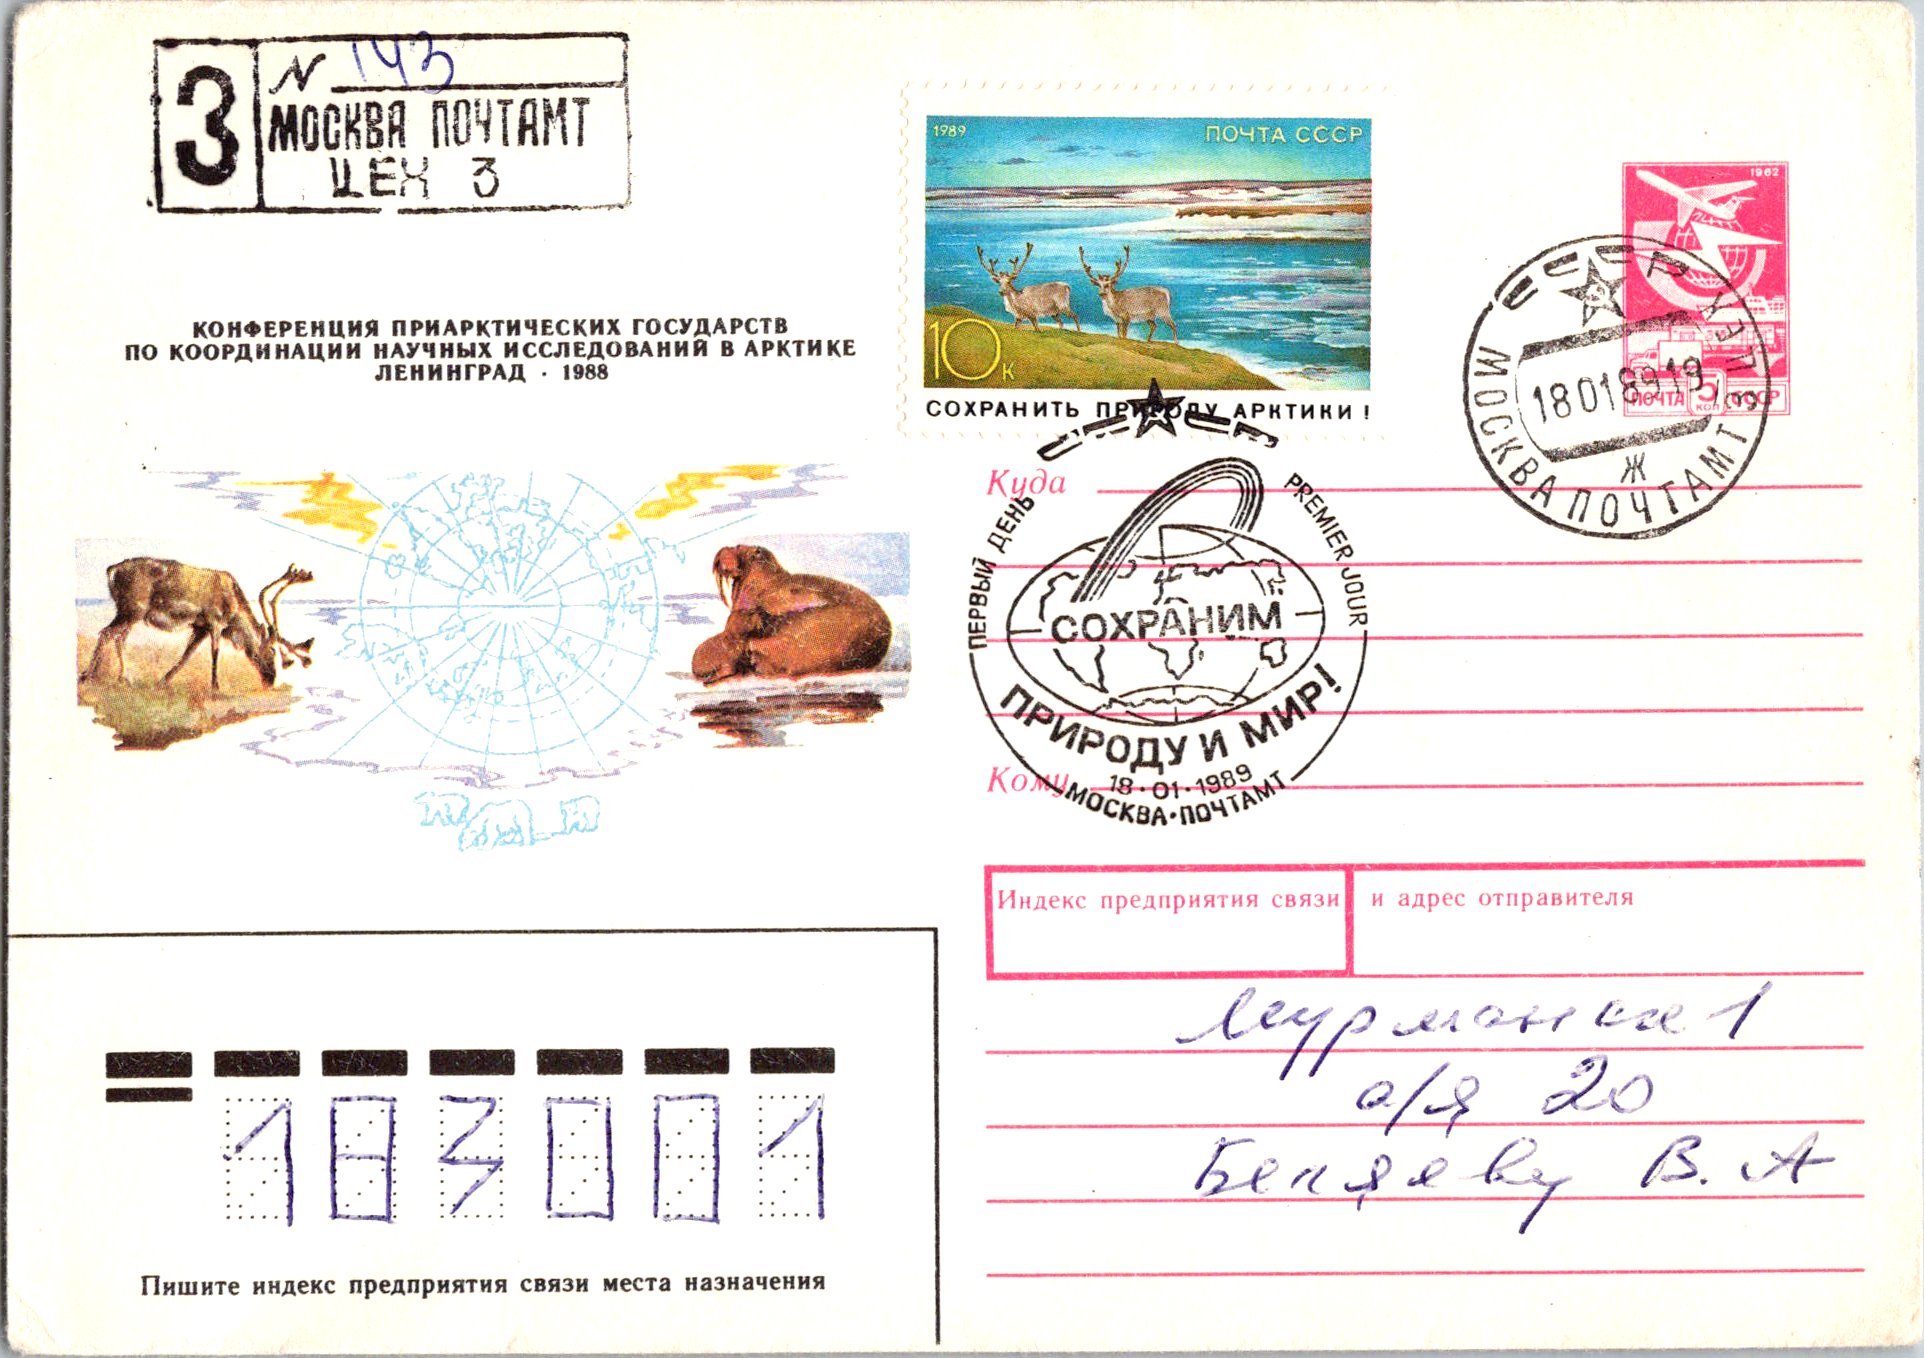 З
N 143
МОСКВА ПОЧТАМТ
ЦЕХ 3
1989
ПОЧТА СССР
10к
СОХРАНИТЬ ПРИРОДУ АРКТИКИ!
1982
ПОЧТА 5 КОП СССР
СССР
МОСКВА ПОЧТАМТ
18018919
Ж
КОНФЕРЕНЦИЯ ПРИАРКТИЧЕСКИХ ГОСУДАРСТВ
ПО КООРДИНАЦИИ НАУЧНЫХ ИССЛЕДОВАНИЙ В АРКТИКЕ
ЛЕНИНГРАД · 1988
Куда
СССР
ПЕРВЫЙ ДЕНЬ
PREMIER JOUR
СОХРАНИМ
ПРИРОДУ И МИР!
18·01·1989
МОСКВА·ПОЧТАМТ
Кому
Индекс предприятия связи и адрес отправителя
Мурманск 1
а/я 20
Беляеву В. А
183001
Пишите индекс предприятия связи места назначения